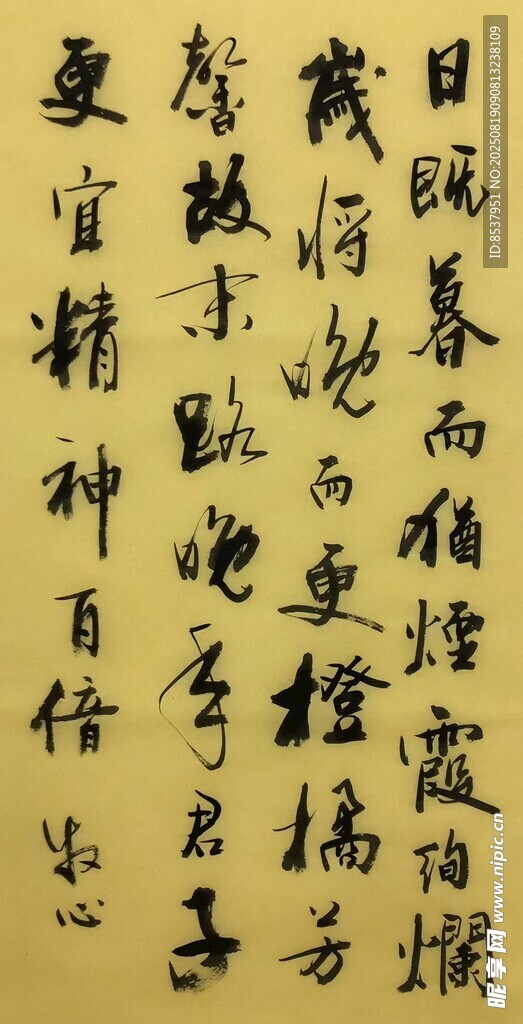 日既暮而猶煙霞絢爛
歲將晚而更橙橘芳
馨故末路晚年君子
更宜精神百倍 牧心
ID:8537951 NO:20250819090813238109
昵享网 www.nipic.cn